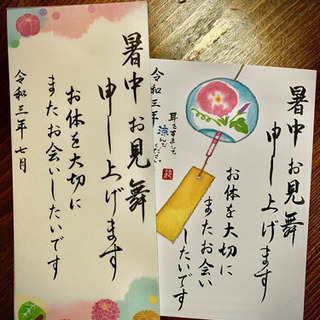 暑中お見舞
申し上げます
お体を大切に
またお会いしたいです
令和三年 七月
暑中お見舞
申し上げます
お体を大切に
またお会い
したいです
耳をすまして
涼んで
ください
令和三年